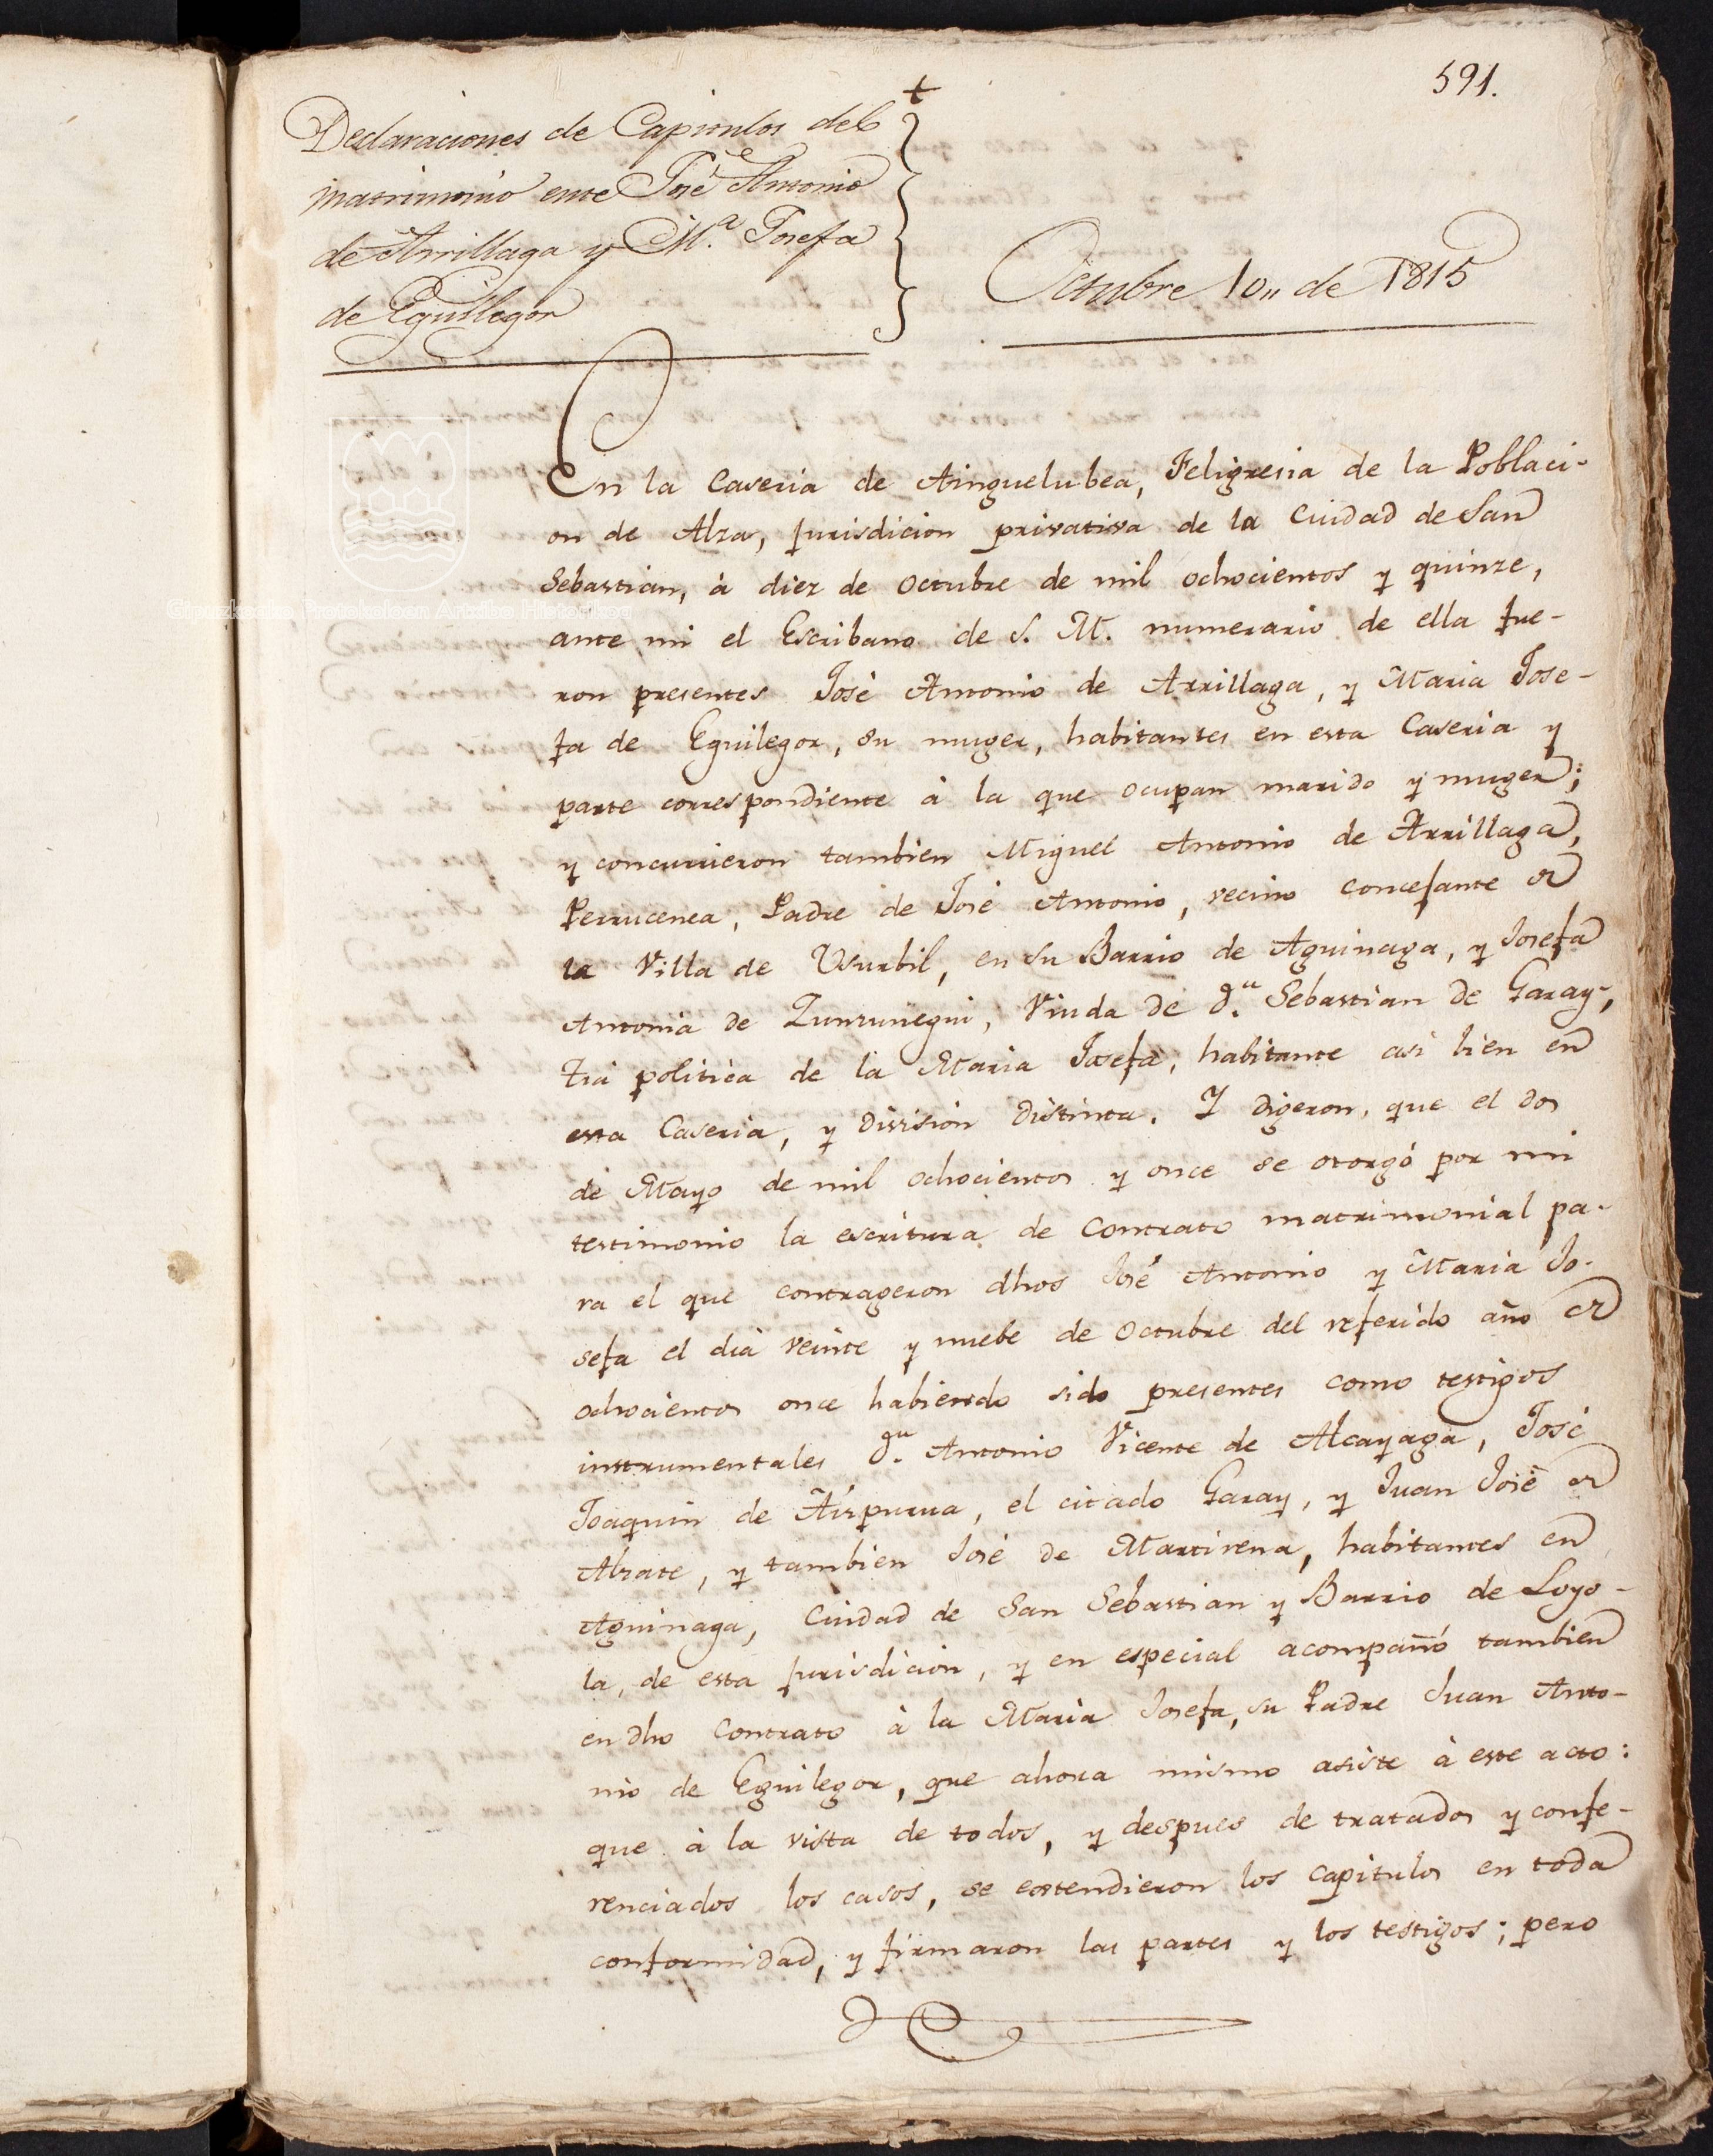 591.
✝
Declaraciones de Capitulos del
matrimonio entre José Antonio
de Arrillaga y M.ª Josefa
de Eguilegor
Octubre 10,, de 1815
En la Caseria de Ainguelubea, Feligresia de la Poblaci-
on de Alza, jurisdicion privativa de la Ciudad de San
Sebastian, à diez de Octubre de mil ochocientos y quinze,
ante mi el Escribano de S. M. numerario de ella fue-
ron presentes José Antonio de Arrillaga, y Maria Jose-
fa de Eguilegor, su muger, habitantes en esta Caseria y
parte correspondiente à la que ocupan marido y muger;
y concurrieron tambien Miguel Antonio de Arrillaga,
Perrucenea, Padre de José Antonio, vecino concejante de
la Villa de Usurbil, en su Barrio de Aguinaga, y Josefa
Antonia de Zunzunegui, Viuda de d.n Sebastian de Garay,
tia politica de la Maria Josefa, habitante asi bien en
esta Caseria, y division distinta. Y digeron, que el dos
de Mayo de mil ochocientos y once se otorgó por mi
testimonio la escritura de Contrato matrimonial pa-
ra el que contrageron dhos José Antonio y Maria Jo-
sefa el dia veinte y nuebe de Octubre del referido año de
ochocientos once habiendo sido presentes como testigos
instrumentales d.n Antonio Vicente de Alcayaga, José
Joaquin de Aizpurua, el citado Garay, y Juan José de
Alzate, y tambien José de Martirena, habitantes en
Aguinaga, Ciudad de San Sebastian y Barrio de Loyo-
la, de esta jurisdicion, y en especial acompañó tambien
en dho Contrato à la Maria Josefa, su Padre Juan Anto-
nio de Eguilegor, que ahora mismo asiste à este acto:
que à la vista de todos, y despues de tratados y confe-
renciados los casos, se extendieron los capitulos en toda
conformidad, y firmaron las partes y los testigos; pero
Gipuzkoako Protokoloen Artxibo Historikoa